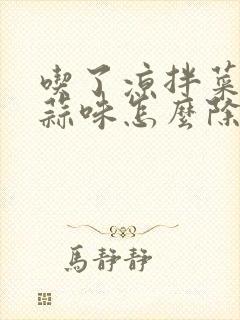 喫了凉拌菜
蒜味怎麼除
馬靜靜